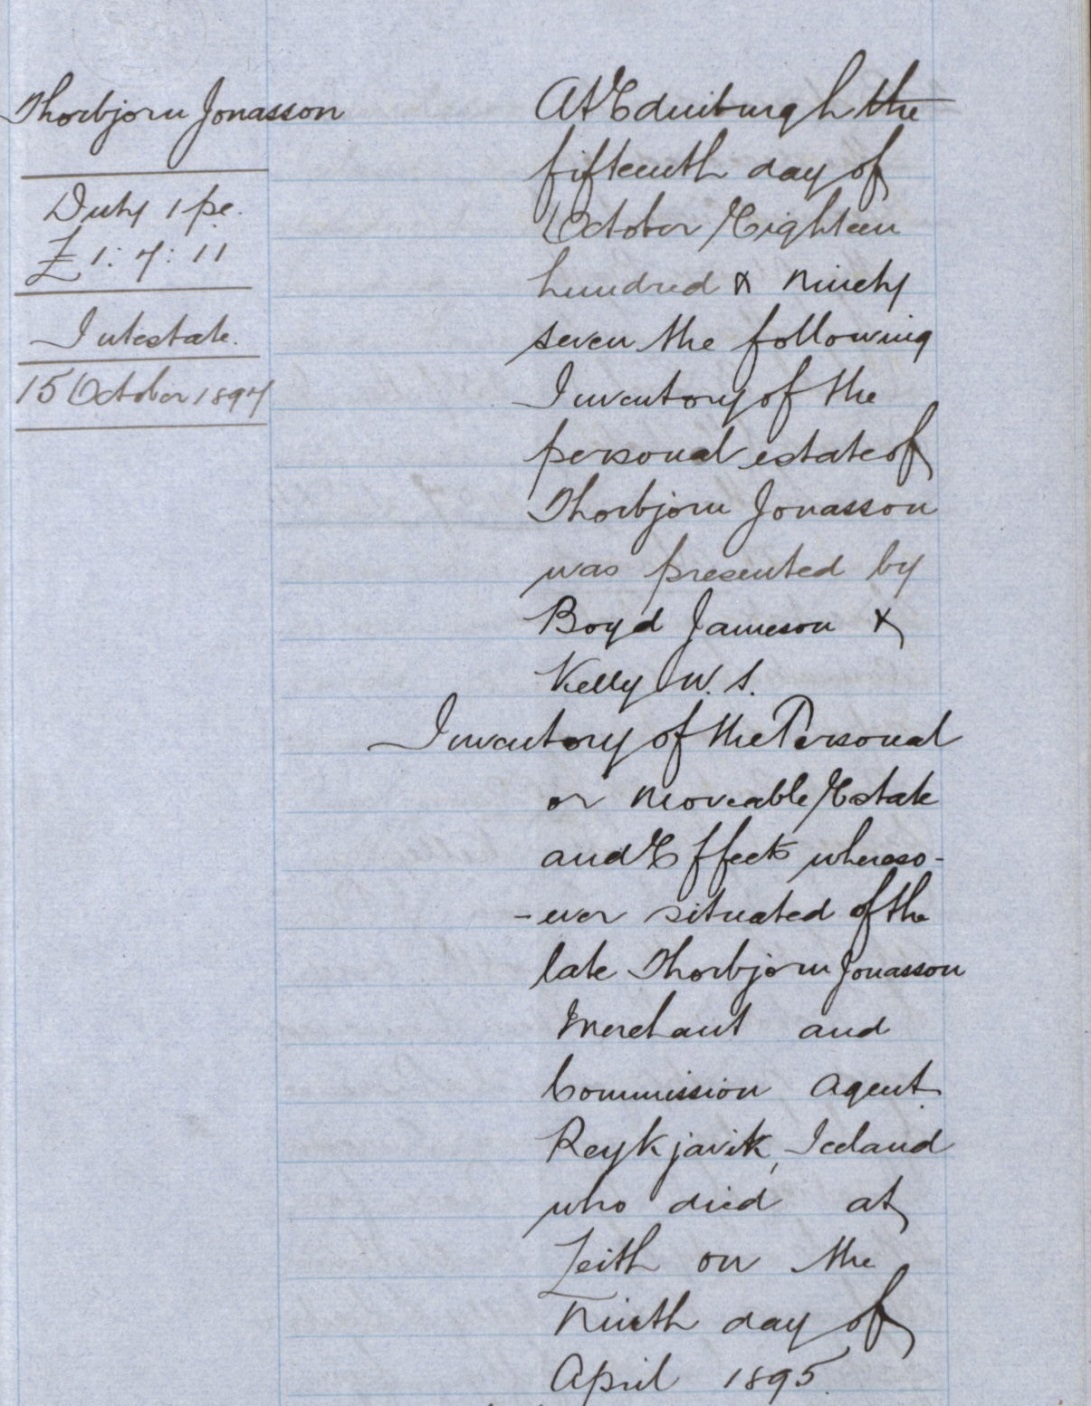 Thorbjorn Jonasson
Duty 1 pc.
£1:7:11
Intestate.
15 October 1897
At Edinburgh the
fifteenth day of
October Eighteen
hundred & ninety
seven the following
Inventory of the
personal estate of
Thorbjorn Jonasson
was presented by
Boyd Jameson &
Kelly W.S.
Inventory of the Personal
or Moveable Estate
and Effects whereso-
-ever situated of the
late Thorbjorn Jonasson
Merchant and
Commission Agent
Reykjavik, Iceland
who died at
Leith on the
Ninth day of
April 1895.